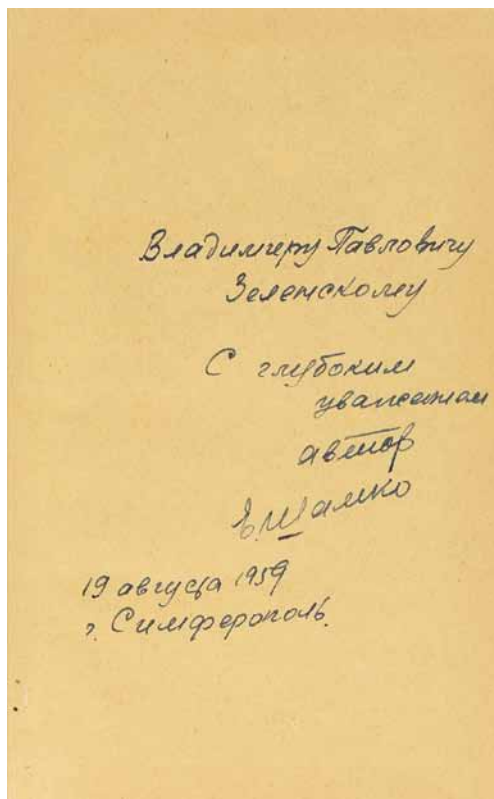 Владимиру Павловичу
Зеленскому
С глубоким
уважением
автор
Е. Шамко
19 августа 1959
г. Симферополь.